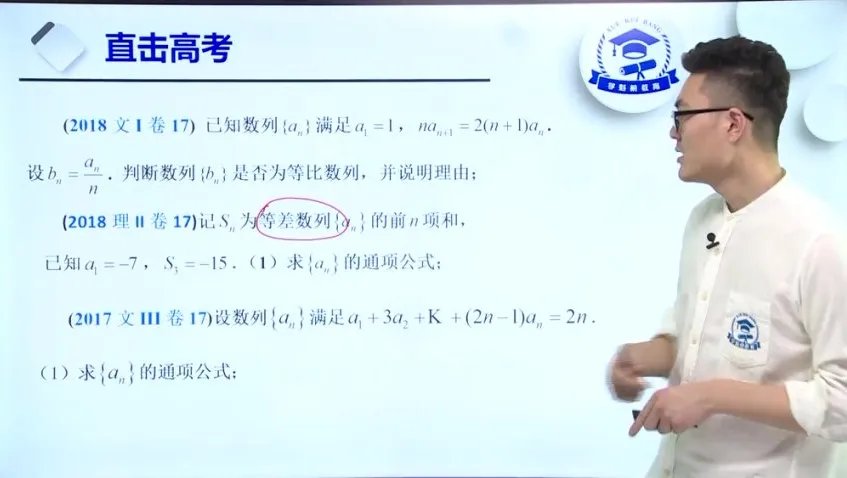 直击高考
XUE KUI BANG
学魁榜教育
(2018 文 I 卷 17) 已知数列{aₙ}满足a₁=1，naₙ₊₁=2(n+1)aₙ．
设bₙ=aₙ/n．判断数列{bₙ}是否为等比数列，并说明理由；
(2018 理 II 卷 17)记Sₙ为等差数列{aₙ}的前n项和，
已知a₁=-7，S₃=-15．（1）求{aₙ}的通项公式；
(2017 文 III 卷 17)设数列{aₙ}满足a₁+3a₂+K+(2n-1)aₙ=2n．
（1）求{aₙ}的通项公式；